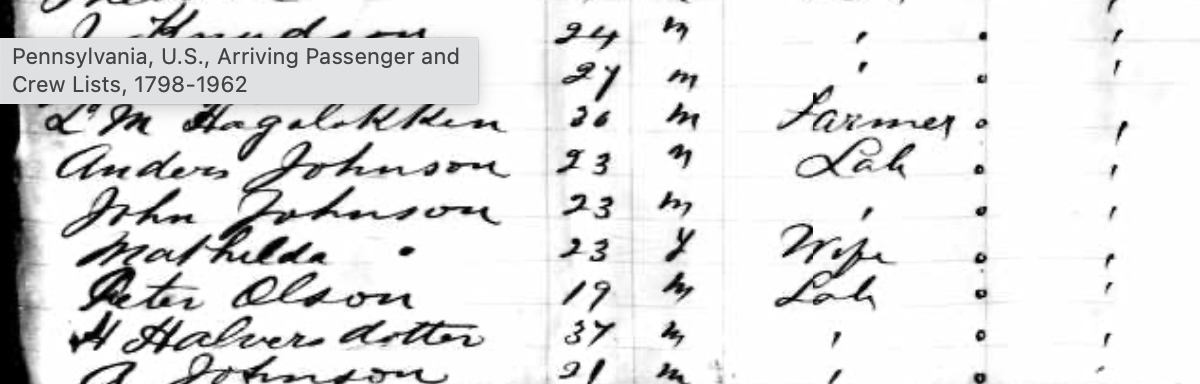 Knudson 24 m "
Pennsylvania, U.S., Arriving Passenger and
Crew Lists, 1798-1962
27 m "
L. M Hagalokken 30 m Farmer o "
Anders Johnson 23 m Lab o "
John Johnson 23 m " o "
Mathilda " 23 f Wife o "
Peter Olson 19 m Lab o "
H Halversdotter 37 m " o "
A Johnson 21 m " o "